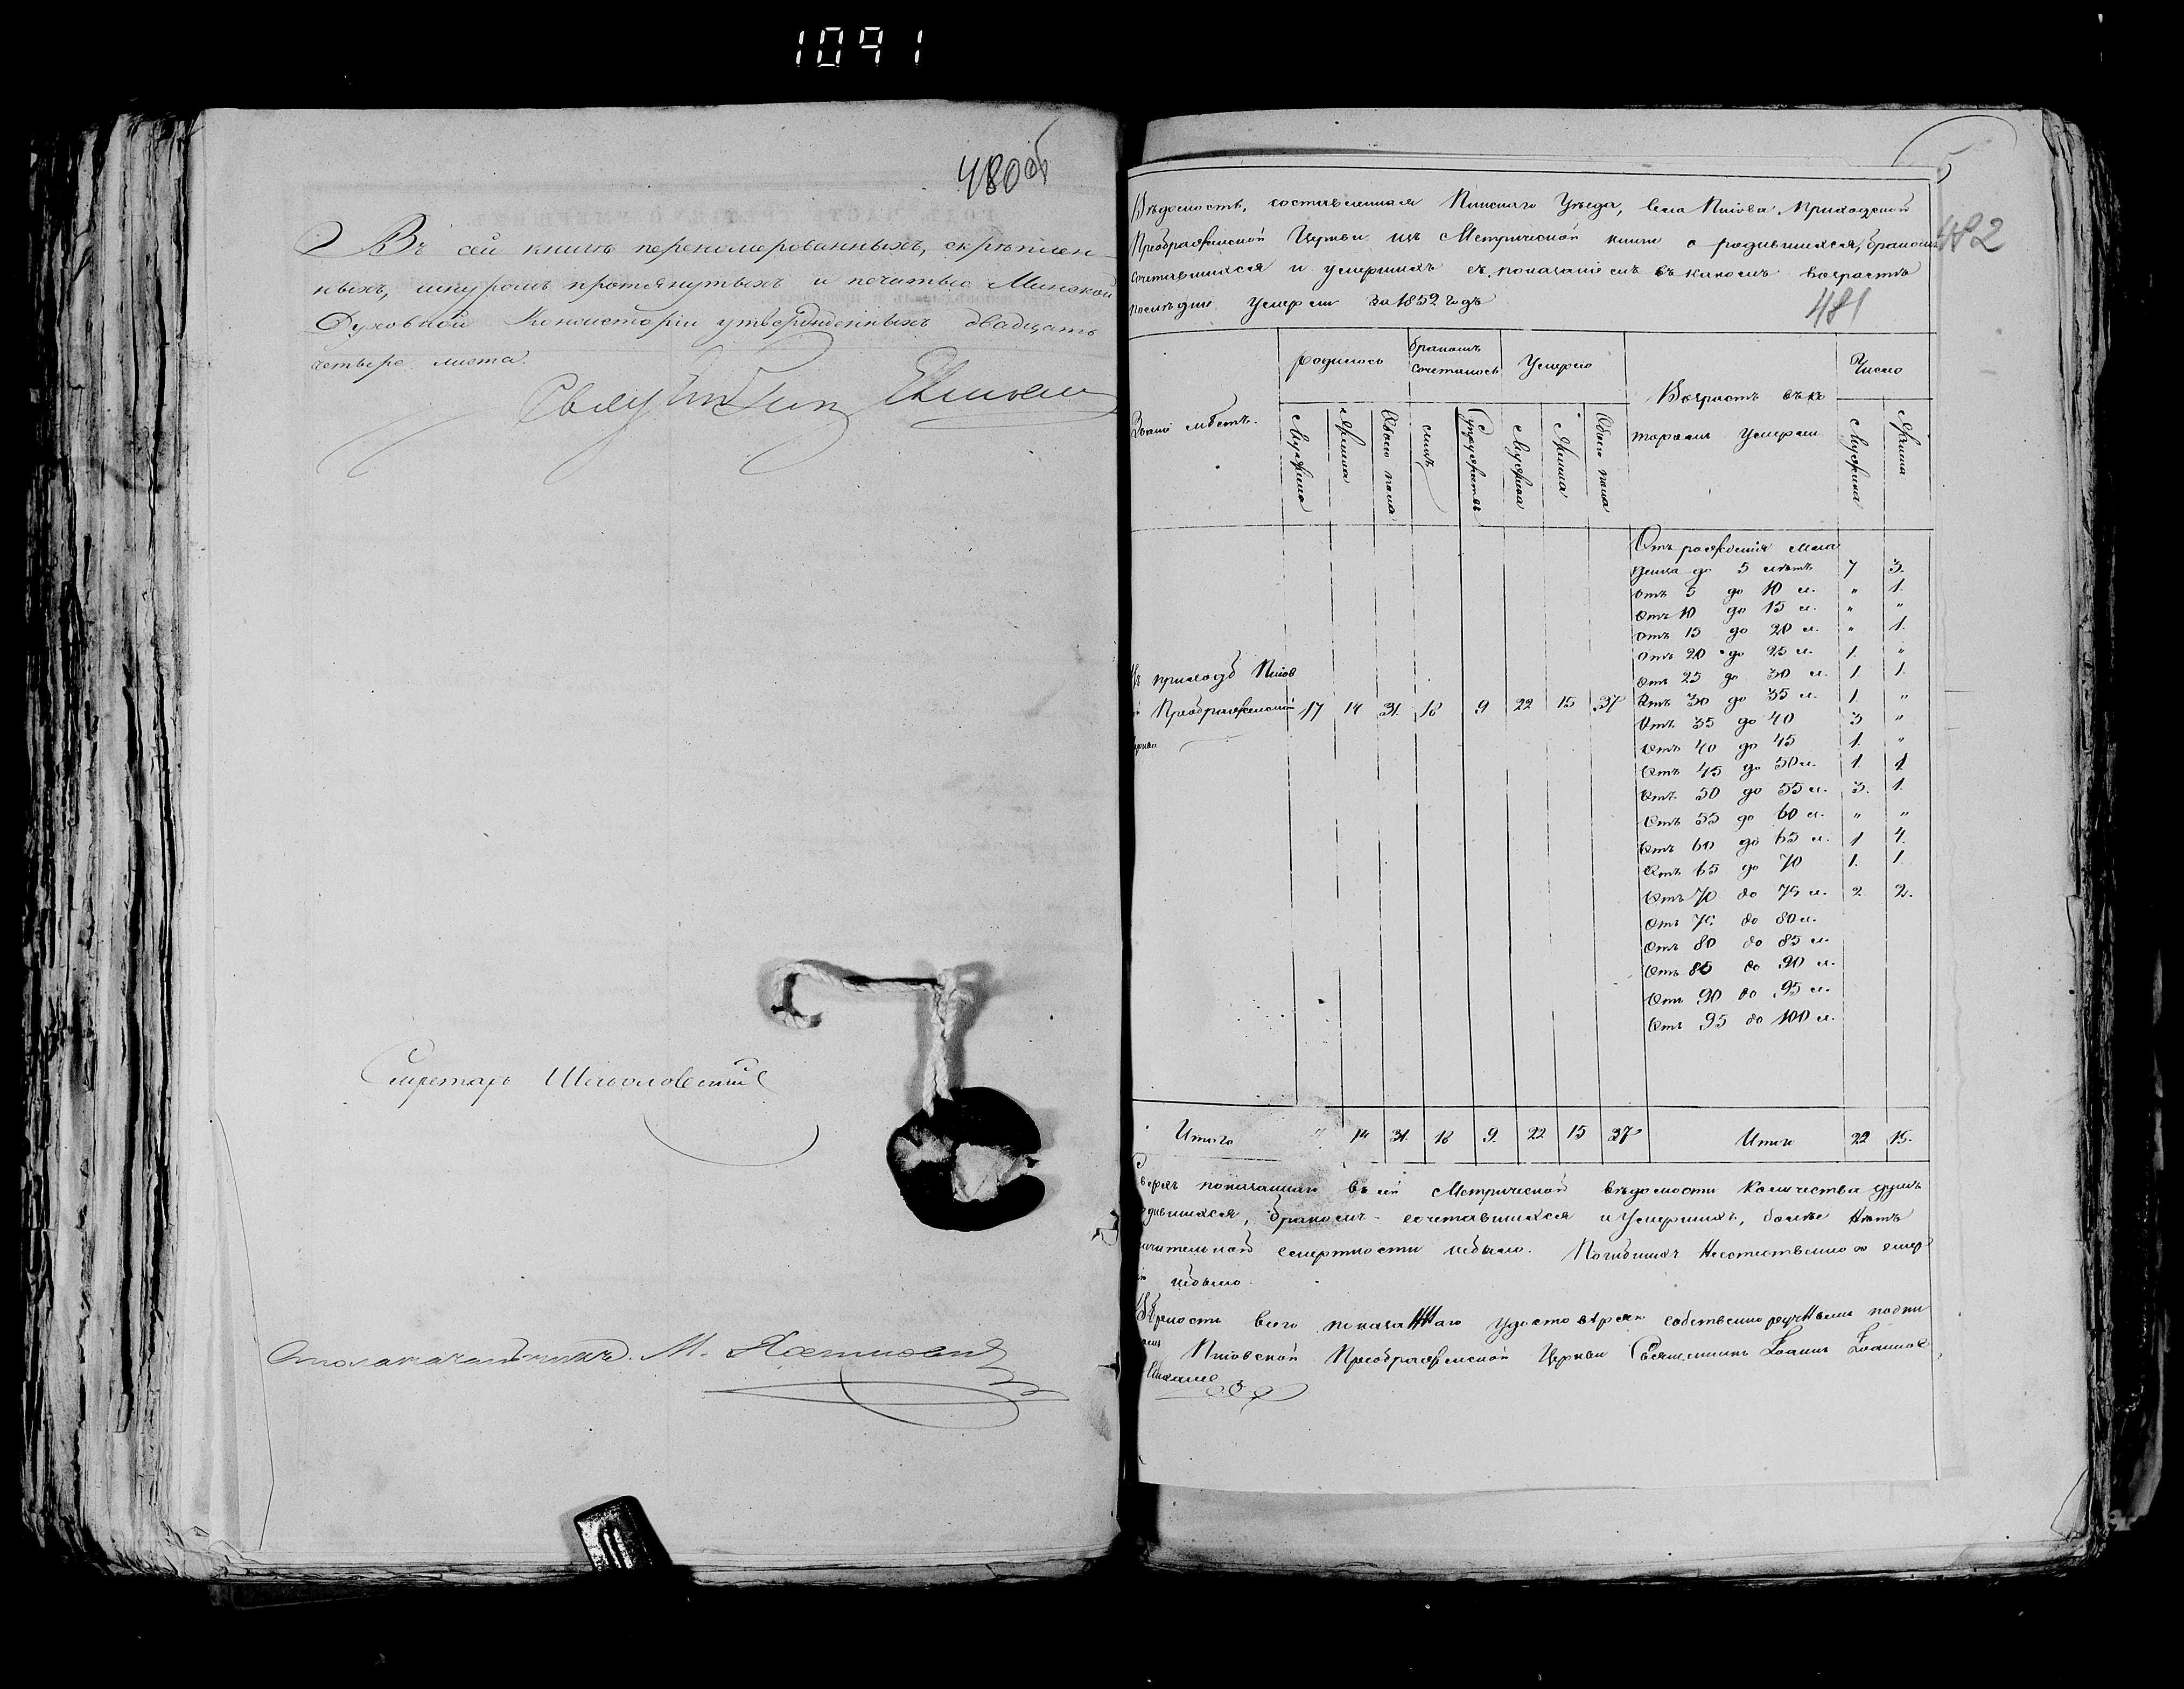 1091
480 об
Въ сей книгѣ перенумерованныхъ, скрѣплен-
ныхъ, шнуромъ протянутыхъ и печатью Минской
Духовной Консисторіи утвержденныхъ двадцать
четыре листа.
Секретарь
Столоначальникъ М.
Вѣдомость, составленная Пинскаго Уѣзда, села Приходской
Преображенской Церкви изъ Метрической книги о родившихся, бракомъ
482
сочетавшихся и умершихъ съ показаніемъ въ какомъ возрастѣ
послѣдніе умерли за 1852 годъ
481
Званіе мѣстъ.
родилось
бракомъ сочеталось
Умерло
Возрастъ въ ко
торомъ Умерли
Число
Мужеска
Женска
Обоего пола
лицъ
Супружествъ
Мужеска
Женска
Обоего пола
Мужеска
Женска
Отъ рожденія мла
денца до 5 лѣтъ 7 3.
отъ 5 до 10 л. " 1.
отъ 10 до 15 л. " "
отъ 15 до 20 л. " 1.
отъ 20 до 25 л. 1. "
отъ 25 до 30 л. 1. 1.
приходѣ
Преображенской 17 14 31. 18 9 22 15 37
Отъ 30 до 35 л. 1. "
Отъ 35 до 40 3 "
Отъ 40 до 45 1. "
Отъ 45 до 50 л. 1. 1.
Отъ 50 до 55 л. 3. 1.
Отъ 55 до 60 л. " "
Отъ 60 до 65 л. 1 4.
Отъ 65 до 70 1. 1
Отъ 70 до 75 л. 2 2.
Отъ 75 до 80 л.
Отъ 80 до 85 л.
Отъ 85 до 90 л.
Отъ 90 до 95 л.
Отъ 95 до 100 л.
Итого 14 31. 18 9. 22 15 37 Итого 22 15.
показаннаго въ сей Метрической вѣдомости количества душъ
бракомъ - сочетавшихся и Умершихъ, болѣе Нѣтъ
смертности небыло. Погибшихъ Неестественною смер
небыло.
всего показаННаго удостовѣряю собственноручНымъ подпи
Преображенской Церкви Священникъ Іоаннъ